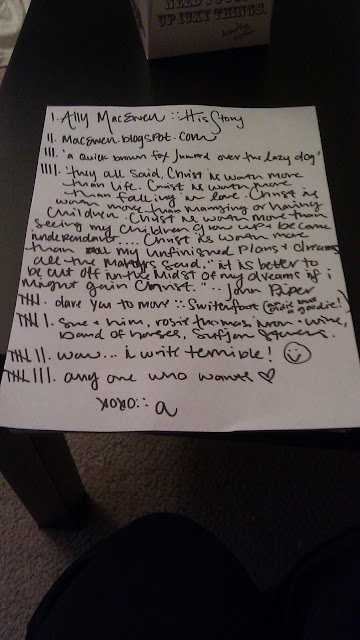 NEED TO
UP ICKY THINGS.
I. Ally MacEwen :: His Story
II. Macewen.blogspot.com
III. "a quick brown fox jumped over the lazy dog"
IIII. "they all said, Christ is worth more
than life. Christ is worth more
than falling in love. Christ is
worth more than marrying or having
children. Christ is worth more than
seeing my children grow up & become
independant.... Christ is worth more
than all my unfinished plans & dreams
all the martyrs said, "it is better to
be cut off in the midst of my dreams if i
might gain Christ." :: John Piper
IIII. dare you to move :: Switchfoot (oldie but
a goodie!)
IIII I. she & him, rosie thomas, iron & wine,
band of horses, sufjan stevens.
IIII II. wow... i write terrible!
IIII III. any one who wants
xoxo :: a